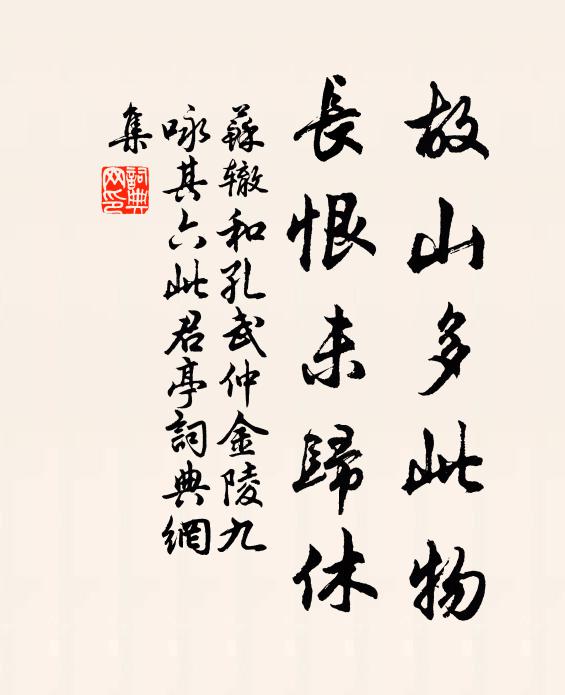 故山多此物
長恨未歸休
蘇辙和孔武仲金陵九
咏其六此君亭詞典網
集
詞典
网印